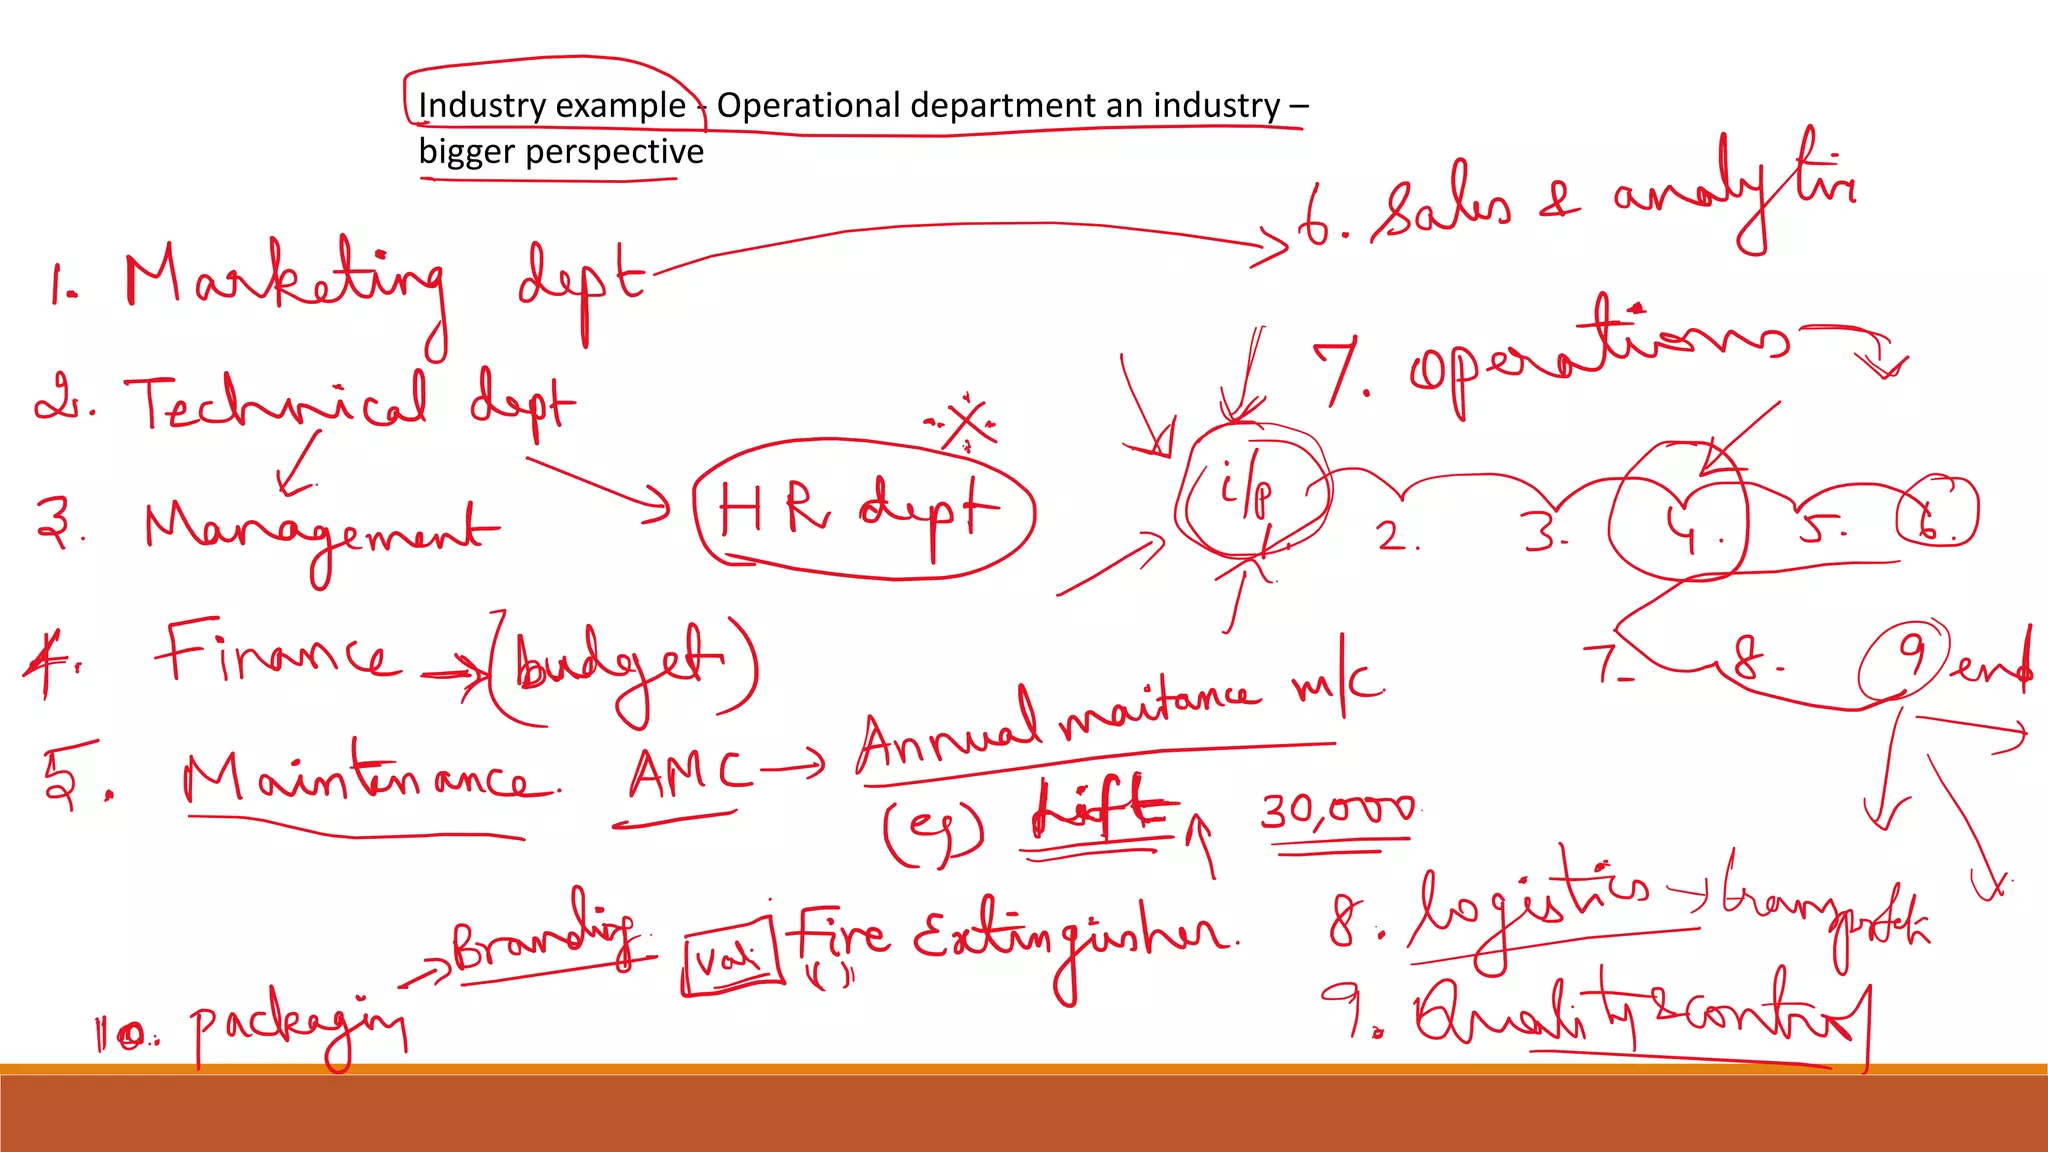 Industry example - Operational department an industry –
bigger perspective
1. Marketing dept
6. Sales & analytic
2. Technical dept
7. Operations
HR dept
3. Management
i/p
1. 2. 3. 4. 5. 6.
7. 8. 9 end
4. Finance → (budget)
5. Maintenance. AMC → Annual maitance m/c
(eg) Lift ↑ 30,000
Fire Extinguisher.
8. logistics →
9. Quality & control
10. packaging → Branding